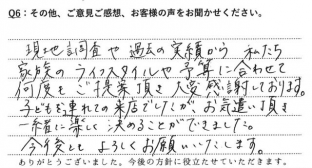 Q6：その他、ご意見ご感想、お客様の声をお聞かせください。
現地調査や過去の実績から 私たち
家族のライフスタイルや予算に合わせて
何度もご提案頂き大変感謝しております。
子どもを連れての来店でしたが、お気遣い頂き
一緒に楽しく決めることができました。
今後とも よろしくお願いいたします。
ありがとうございました。今後の方針に役立たせていただきます。